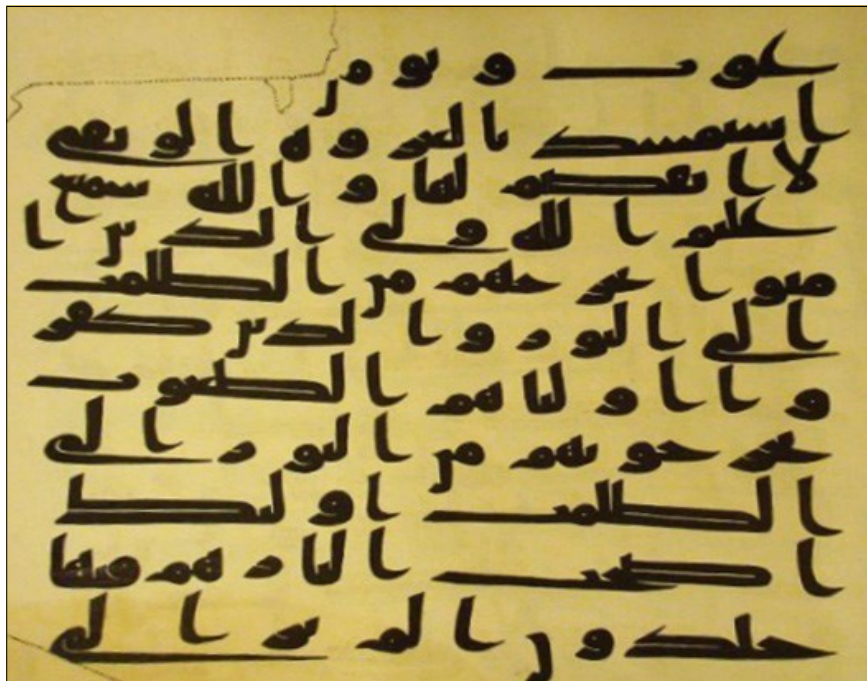 غوت ويومن
استمسك بالعروة الوثقى
لا انفصم لها والله سميع
عليم الله ولي الذين ا
منوا يخرجهم من الظلمت
الى النور والذين كفر
وا اولياهم الطغوت
يخرجونهم من النور الى
الظلمت اولئك
اصحب النار هم فيها
خلدون الم تر الى